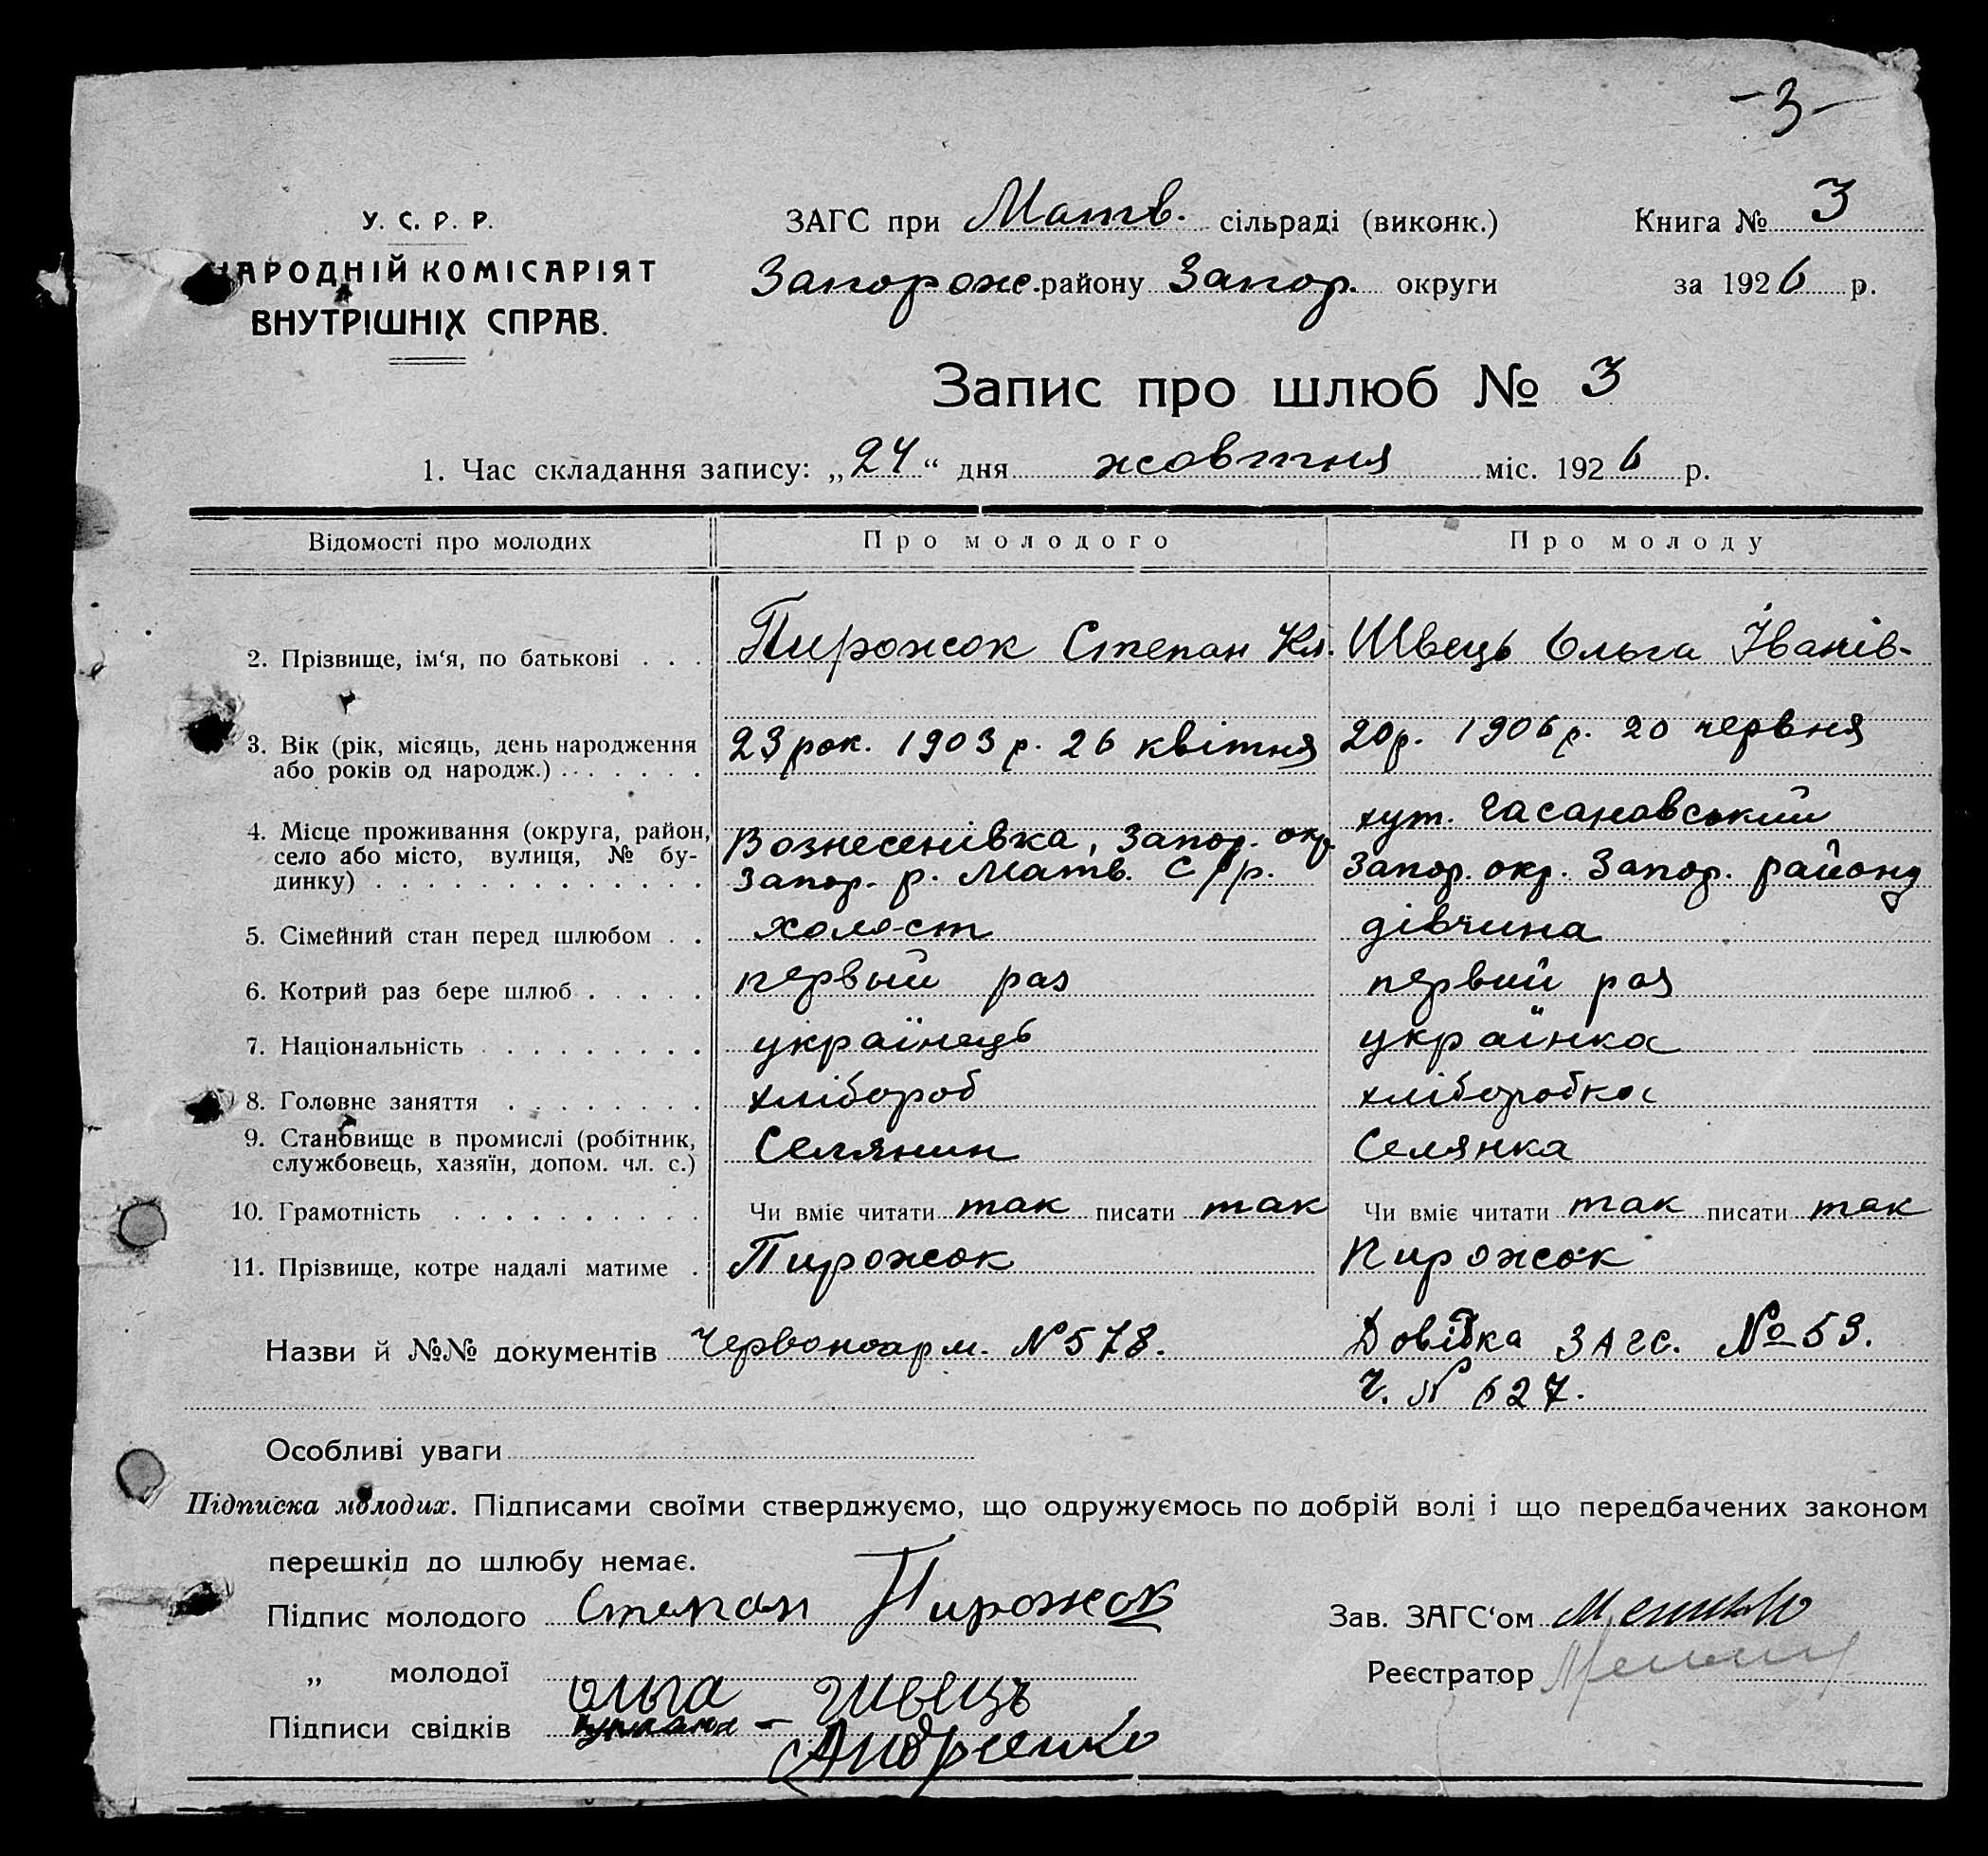 -3-
У. С. Р. Р.
НАРОДНІЙ КОМІСАРІЯТ
ВНУТРІШНІХ СПРАВ.
ЗАГС при Матв. сільраді (виконк.)
Запорож. району Запор. округи
Книга № 3
за 1926 р.
Запис про шлюб № 3
1. Час складання запису: „24“ дня жовтня міс. 1926 р.
Відомості про молодих Про молодого Про молоду
2. Прізвище, ім‘я, по батькові . . . Пирожок Степан Кл. Швець Ольга Іванів-
3. Вік (рік, місяць, день народження 23 рок. 1903 р. 26 квітня 20 р. 1906 р. 20 червня
або років од народж.) . . . . . . .
хут. Гасановський
4. Місце проживання (округа, район, Вознесенівка, Запор. окр.
село або місто, вулиця, № бу- Запор. р. Матв. С/р. Запор. окр. Запор. району
динку) . . . . . . . . . . . . .
5. Сімейний стан перед шлюбом . . холост дівчина
6. Котрий раз бере шлюб . . . . . первый раз первий раз
7. Національність . . . . . . . . . українець українка
8. Головне заняття . . . . . . . . хлібороб хліборобка
9. Становище в промислі (робітник, Селянин Селянка
службовець, хазяїн, допом. чл. с.)
10. Грамотність . . . . . . . . . . Чи вміє читати так писати так Чи вміє читати так писати так
11. Прізвище, котре надалі матиме . Пирожок Пирожок
Назви й №№ документів Червоноарм. N 578. Довідка ЗАГС. № 53.
Ч. N 627.
Особливі уваги
Підписка молодих. Підписами своїми стверджуємо, що одружуємось по добрій волі і що передбачених законом
перешкід до шлюбу немає.
Підпис молодого Степан Пирожок Зав. ЗАГС‘ом
„ молодої Ольга Швець Реєстратор
Підписи свідків Андриенко